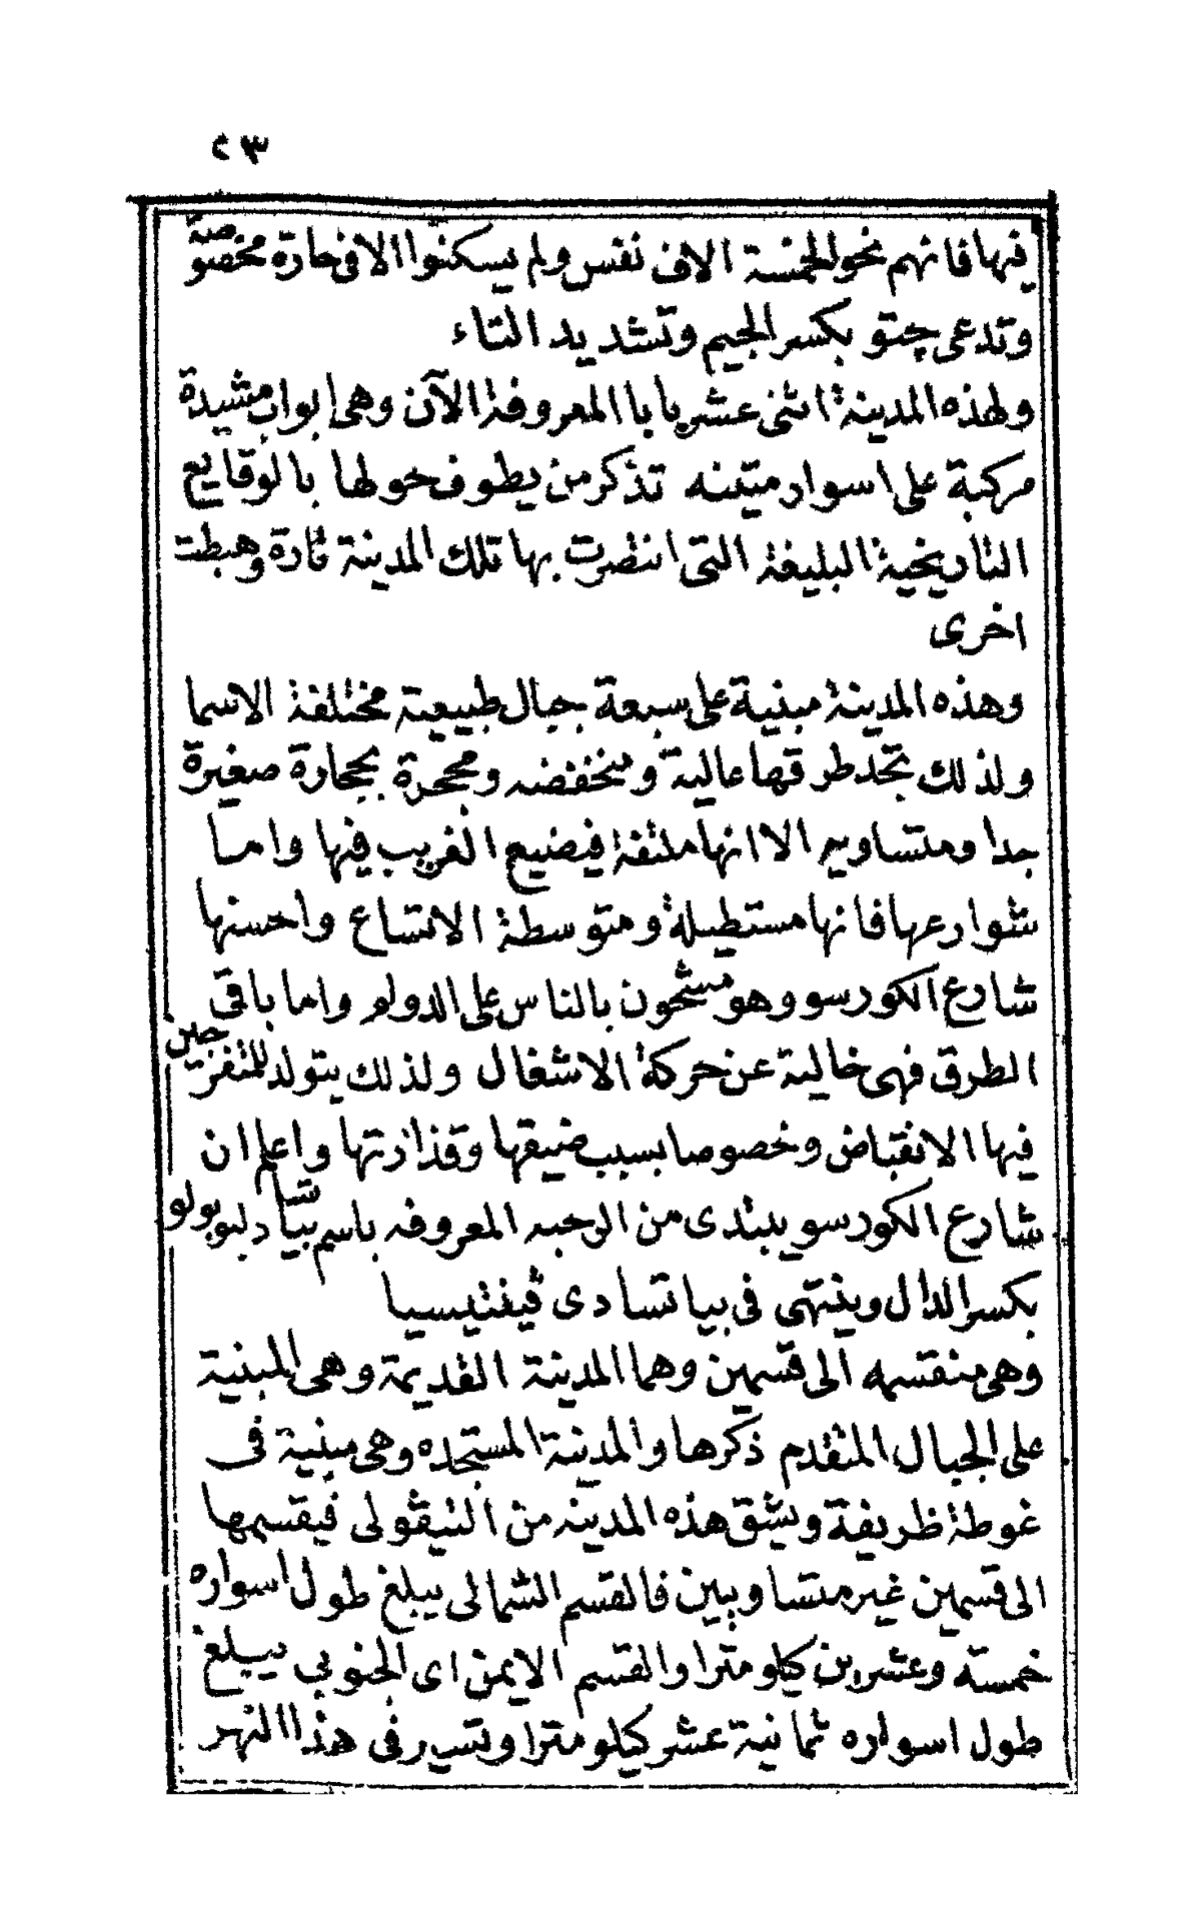 ٢٣
فيها فانهم نحو الخمسة الاف نفس ولم يسكنوا الا فى حارة مخصوصة
وتدعى چتو بكسر الجيم وتشديد التاء
ولهذه المدينة اثنى عشر بابا المعروفة الآن وهى ابواب مشيدة
مركبة على اسوار متينه تذكر من يطوف حولها بالوقايع
التاريخية البليغة التى انتصرت بها تلك المدينة تارة وهبطت
اخرى
وهذه المدينة مبنية على سبعة جبال طبيعية مختلفة الاسما
ولذلك تجد طرقها عالية ومنخفضه ومحجرة بحجارة صغيرة
جدا ومتساويه الا انها ملتفة فيضيع الغريب فيها واما
شوارعها فانها مستطيلة ومتوسطة الاتساع واحسنها
شارع الكورسو وهو مشحون بالناس على الدوام واما باقى
الطرق فهى خالية عن حركة الاشغال ولذلك يتولد للمتفرجين
فيها الانقباض وخصوصا بسبب ضيقها وقذارتها واعلم ان
شارع الكورسو يبتدى من الرحبه المعروفه باسم بياتسا دلبوبولو
بكسر الدال وينتهى فى بياتسا دى ڤينتيسيا
وهى منقسمه الى قسمين وهما المدينة القديمة وهى المبنية
على الجبال المتقدم ذكرها والمدينة المستجده وهى مبنية فى
غوطة ظريفة ويشق هذه المدينه من التيڤولى فيقسمها
الى قسمين غير متساويين فالقسم الشمالى يبلغ طول اسواره
خمسته وعشرين كيلو مترا والقسم الايمن اى الجنوبى يبلغ
طول اسواره ثمانية عشر كيلو مترا وتسير فى هذا النهر